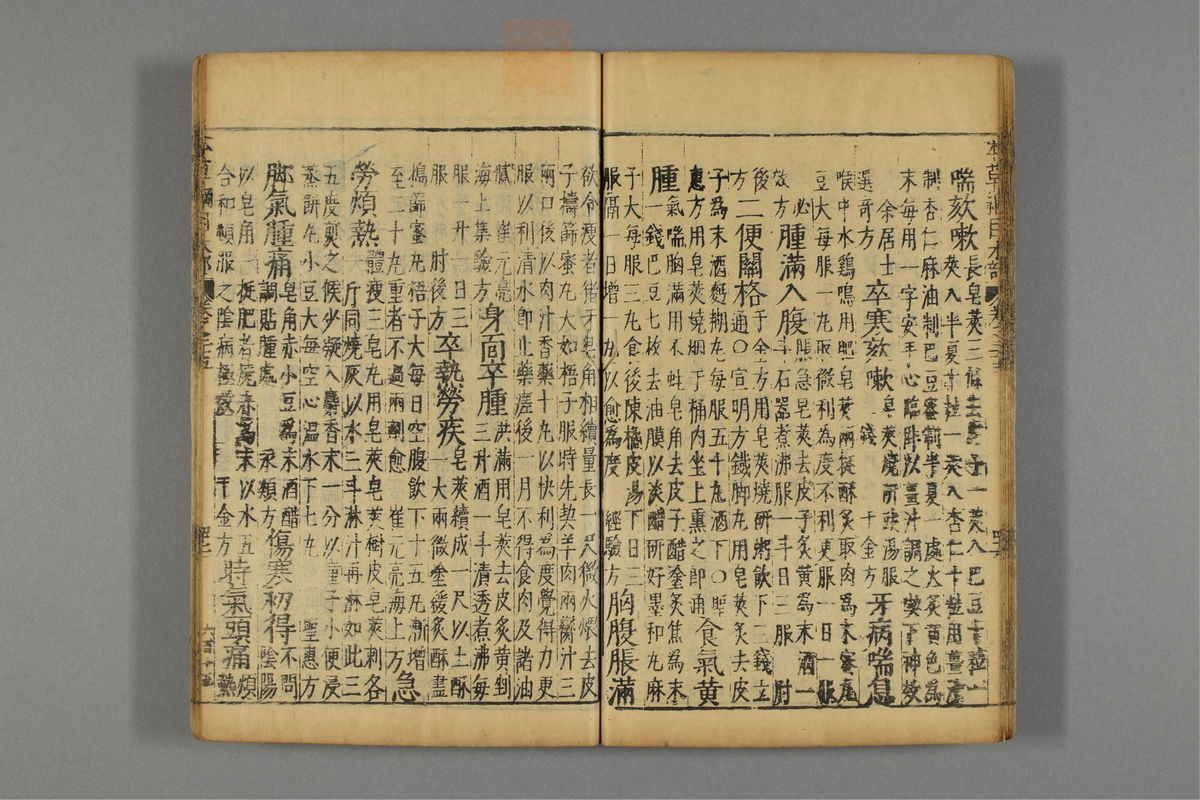 喘欬嗽長皂莢三條去皮子一莢入巴豆十粒一
莢入半夏十粒一莢入杏仁十粒用薑汁
制杏仁麻油制巴豆蜜制半夏一處火炙黃色為
末每用一字安手心臨卧以薑汁調之喫下神效
余居士選奇方
卒寒欬嗽皂莢燒研豉湯服二錢千金方
牙病喘息
喉中水鷄鳴用肥皂莢兩挺酥炙取肉為末蜜丸
豆大每服一丸取微利為度不利更服一日一服
必效方
腫滿入腹脹急皂莢去皮子炙黃為末酒一
斗石器煮沸服一斗日三服肘
後方
二便關格千金方用皂莢燒研粥飲下三錢立
通〇宣明方鐵脚丸用皂莢炙去皮
子為末酒麪糊丸每服五十丸酒下〇聖
惠方用皂莢燒烟于桶内坐上熏之即通
食氣黃
腫氣喘胸滿用不蛀皂角去皮子醋塗炙焦為末
一錢巴豆七枚去油膜以淡醋研好墨和丸麻
子大每服三丸食後陳橘皮湯下日三
服隔一日增一丸以愈為度經驗方
胸腹脹滿
欲令瘦者猪牙皂角相續量長一尺微火煨去皮
子擣篩蜜丸大如梧子服時先喫羊肉兩臠汁三
兩口後以肉汁吞藥十丸以快利為度覺得力更
服以利清水即止藥瘥後一月不得食肉及諸油
膩崔元亮
海上集驗方
身面卒腫洪滿用皂莢去皮炙黃剉
三升酒一斗漬透煮沸每
服一升一日三
服肘後方
卒熱勞疾皂莢續成一尺以上酥
一大兩微塗緩炙酥盡
搗篩蜜丸梧子大每日空腹飲下十五丸漸增
至二十丸重者不過兩劑愈崔元亮海上方
急
勞煩熱體瘦三皂丸用皂莢皂莢樹皮皂莢刺各
一斤同燒灰以水三斗淋汁再淋如此三
五度煎之候少凝入麝香末一分以童子小便浸
蒸餅丸小豆大每空心溫水下七丸聖惠方
脚氣腫痛皂角赤小豆為末酒醋
調貼腫處永類方
傷寒初得不問
陰陽
以皂角一挺肥者燒赤為末以水五
合和頓服之陰病極效千金方
時氣頭痛煩
熱